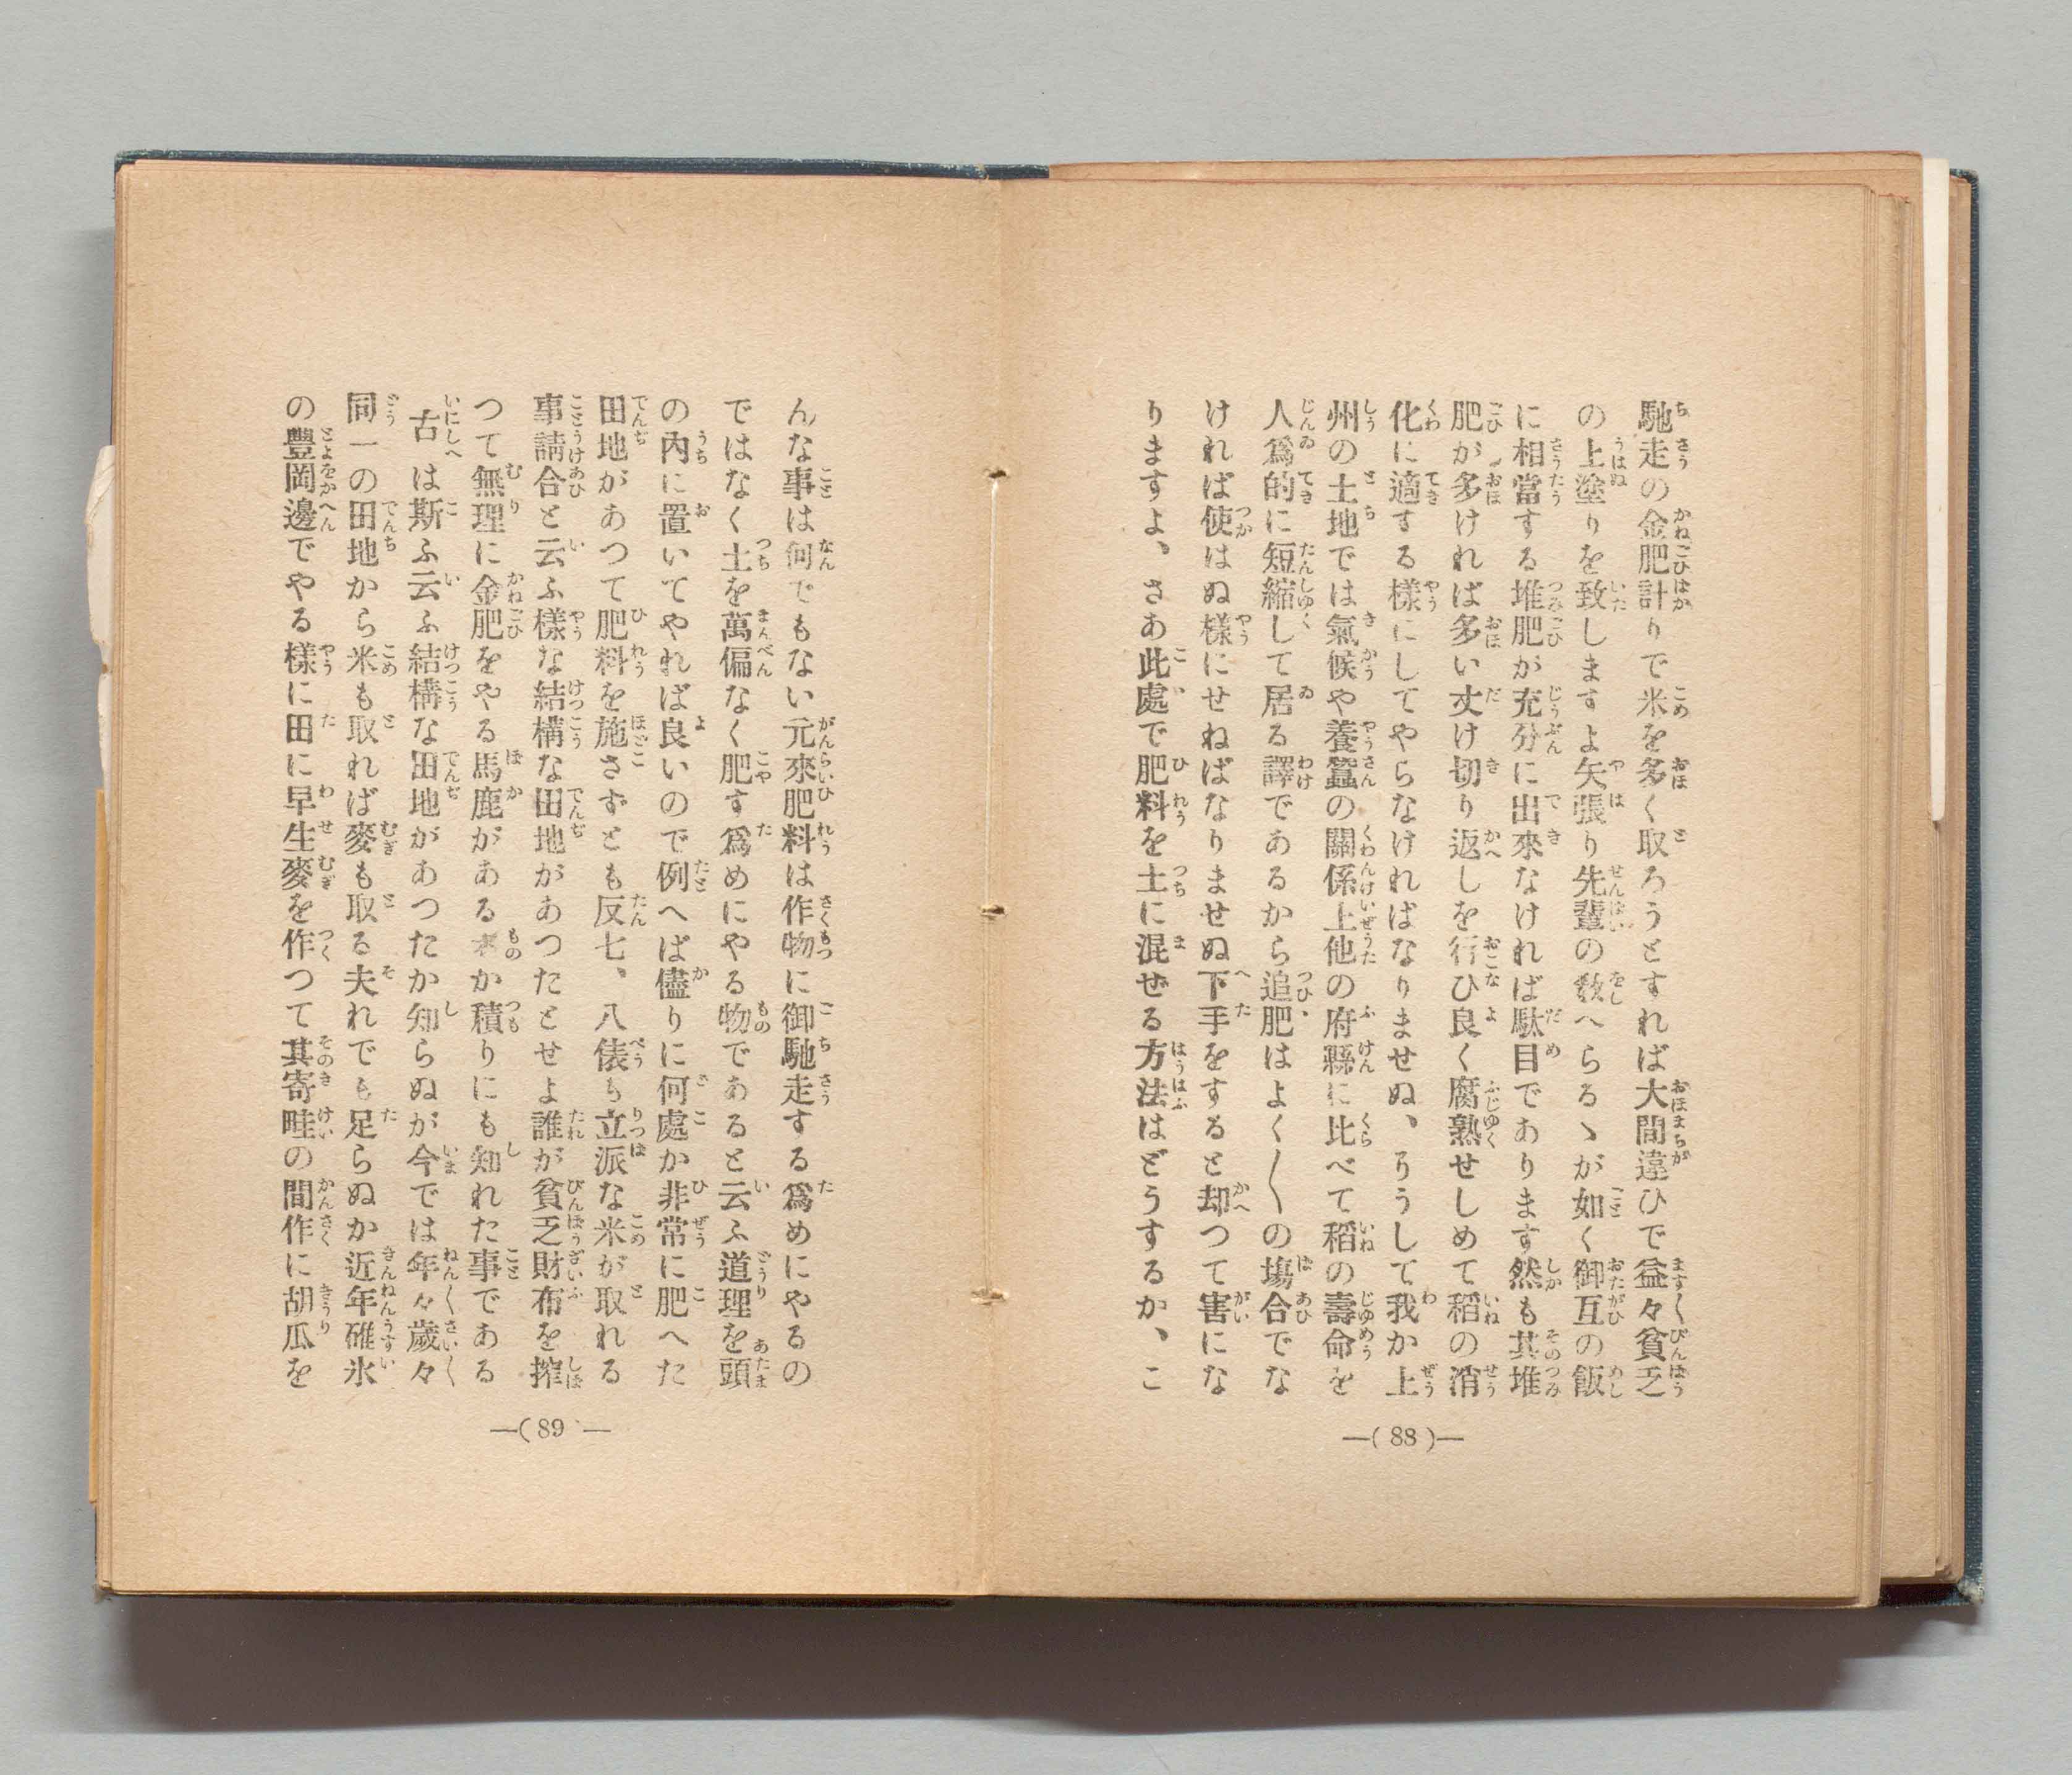 馳走の金肥計りで米を多く取ろうとすれば大間違ひで益々貧乏
の上塗りを致しますよ矢張り先輩の教へらるゝが如く御互の飯
に相當する堆肥が充分に出來なければ駄目であります然も其堆
肥が多ければ多い丈け切り返しを行ひ良く腐熟せしめて稻の消
化に適する樣にしてやらなければなりませぬ、ろうして我か上
州の土地では氣候や養蠶の關係上他の府縣に比べて稻の壽命を
人爲的に短縮して居る譯であるから追肥はよく〳〵の塲合でな
ければ使はぬ樣にせねばなりませぬ下手をすると却つて害にな
りますよ、さあ此處で肥料を土に混ぜる方法はどうするか、こ
—( 88 )—
んな事は何でもない元來肥料は作物に御馳走する爲めにやるの
ではなく土を萬偏なく肥す爲めにやる物であると云ふ道理を頭
の內に置いてやれば良いので例へば儘りに何處か非常に肥へた
田地があつて肥料を施さずとも反七、八俵も立派な米が取れる
事請合と云ふ樣な結構な田地があつたとせよ誰が貧乏財布を搾
つて無理に金肥をやる馬鹿がある者か積りにも知れた事である
古は斯ふ云ふ結構な田地があつたか知らぬが今では年々歲々
同一の田地から米も取れば麥も取る夫れでも足らぬか近年碓氷
の豐岡邊でやる樣に田に早生麥を作つて其寄畦の間作に胡瓜を
—( 89 —